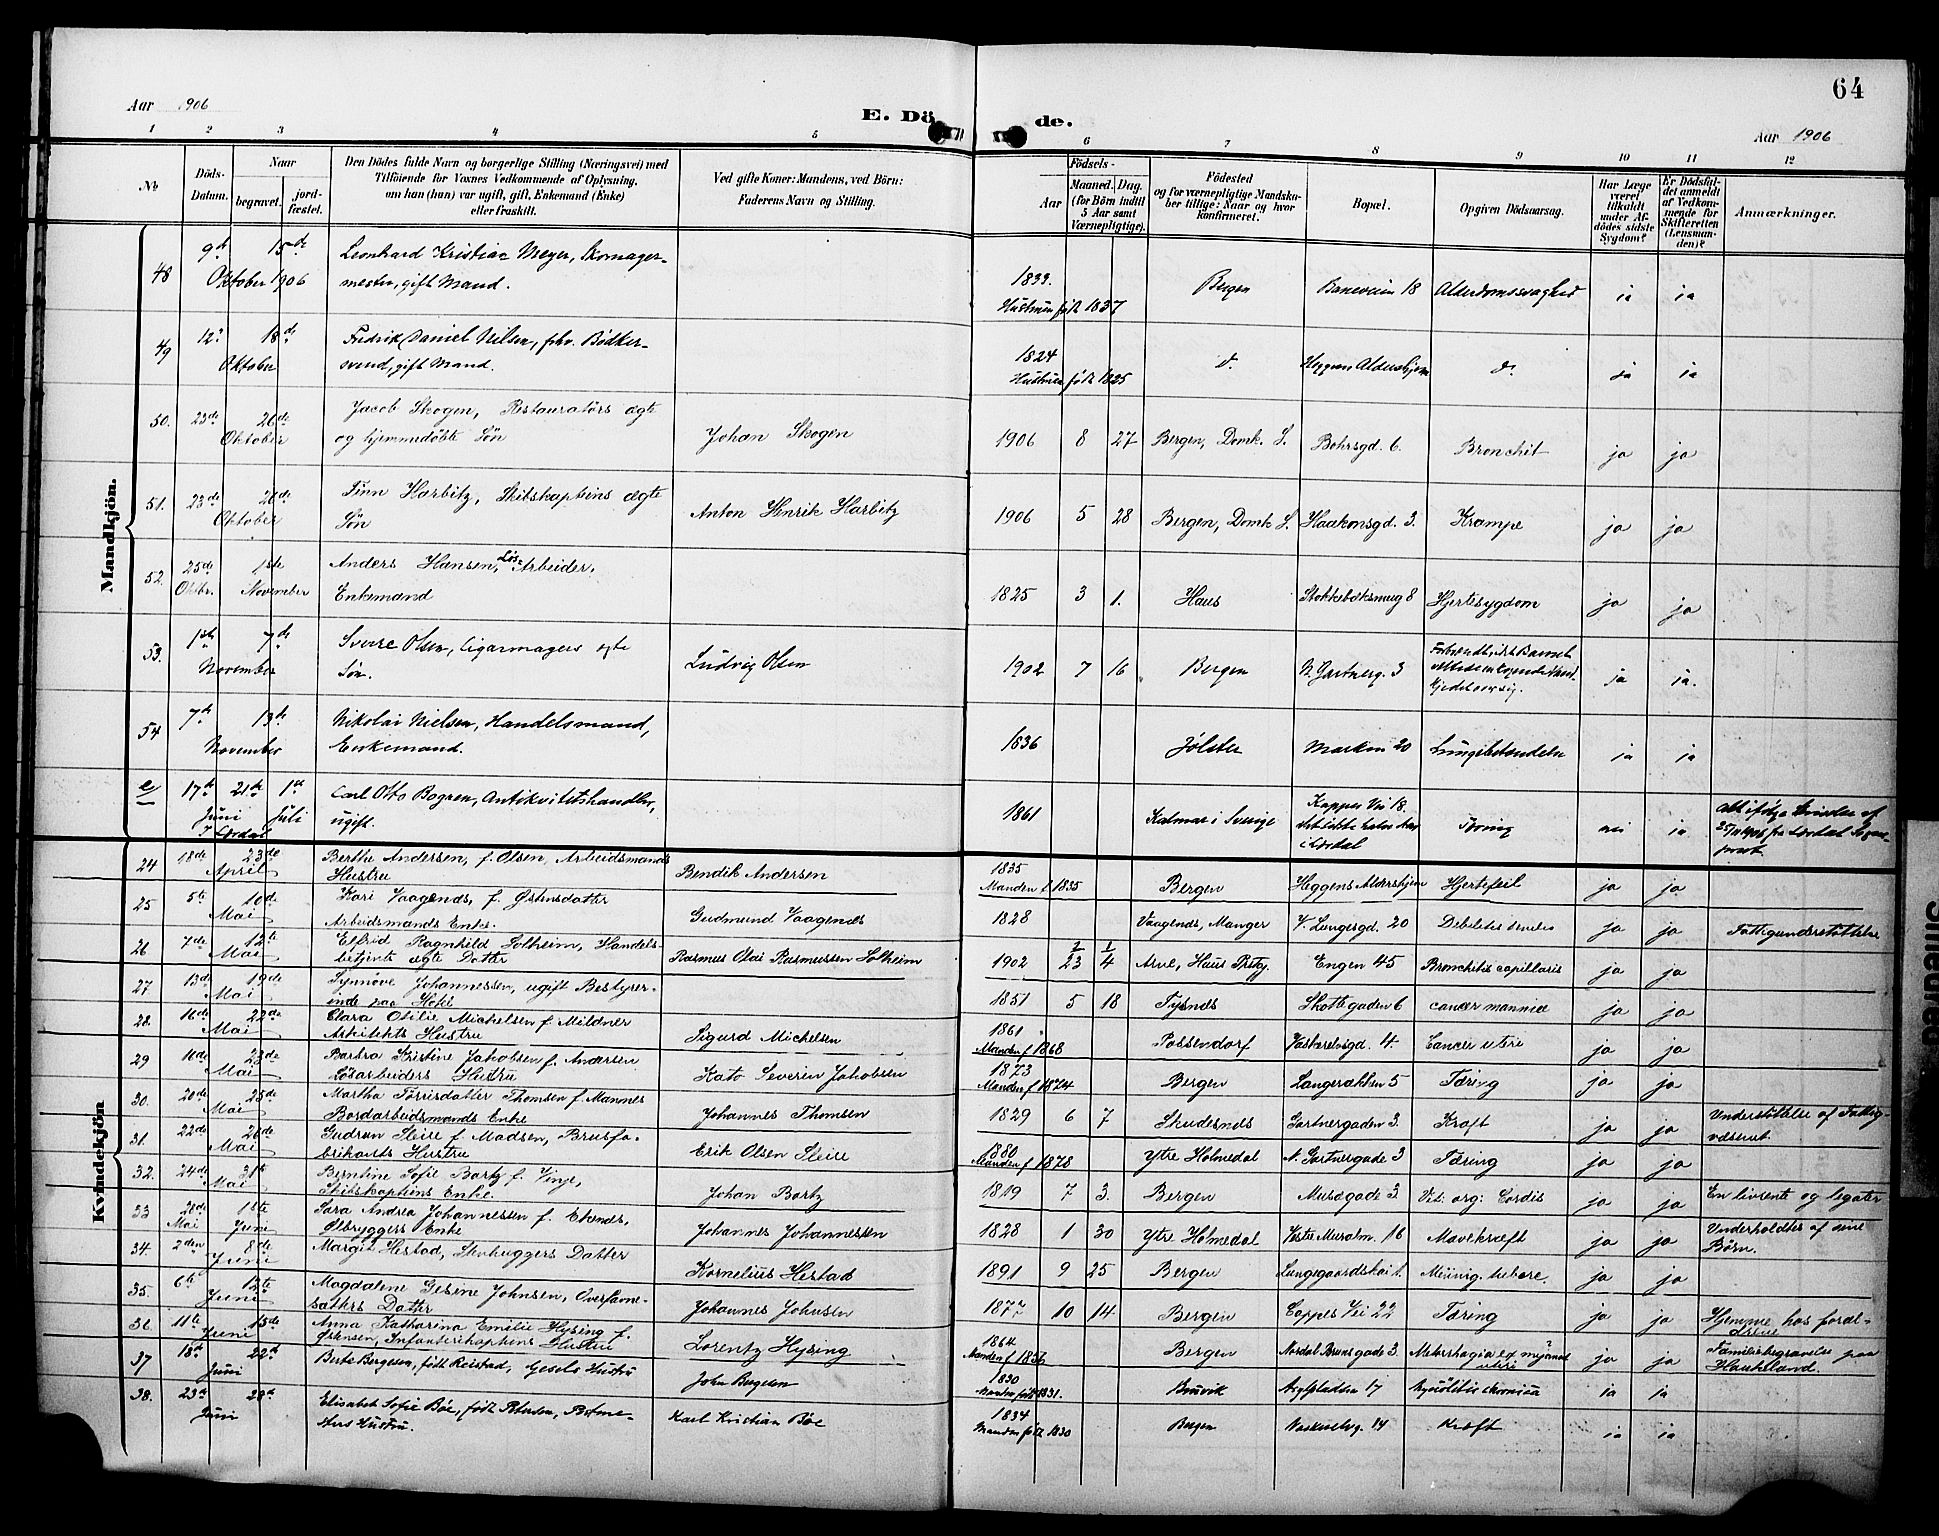 64
Aar 1906
E. Dö de.
Aar 1906
1 2 3 4 5 6 7 8 9 10 11 12
No
Döds-Datum.
Naar
begravet.
jord-fæstet.
Den Dödes fulde Navn og borgerlige Stilling (Næringsvei) med
Tilföiende for Voxnes Vedkommende af Oplysning,
om han (hun) var ugift, gift, Enkemand (Enke)
eller fraskilt.
Ved gifte Koner: Mandens, ved Börn:
Faderens Navn og Stilling.
Födsels-
Aar
Maaned. Dag.
(for Börn indtil
5 Aar samt
Værnepligtige).
Födested
og for værnepligtige Mandska-
ber tillige: Naar og hvor
konfirmeret.
Bopæl.
Opgiven Dödsaarsag.
Har Læge
været
tilkaldt
under Af-
dödes sidste
Sygdom?
Er Dödsfal-
det anmeldt
af Vedkom-
mende for
Skifteretten
(Lensman-
den)?
Anmærkninger.
Mandkjön.
48 9de 15de Oktober 1906 Leonhard Kristian Meyer, Skomager-
mester, gift Mand. 1833. Hustruen født 1837 Bergen Baneveien 18 Alderdomssvaghed ja ja
49 12te 18de Oktober Fredrik Daniel Nilsen, fhv. Bødker-
svend, gift Mand. 1824 Hustruen født 1825 do Heggens Aldershjem do ja ja
50. 23de 26de Oktober Jacob Skogen, Restauratørs ægte
og hjemmedøbte Søn Johan Skogen 1906 8 27 Bergen, Domk. S. Bohrsgd. 6. Bronchit ja ja
51. 23de 26de Oktober Finn Harbitz, Skibskapteins ægte
Søn Anton Henrik Harbitz 1906 5 28 Bergen, Domk S. Haakonsgd. 3. Krampe ja ja
52. 25de Oktbr. 1ste November Anders Hansen, Løs-Arbeider.
Enkemand 1825 3 1. Haus Stokkebæksmug 8 Hjertesygdom ja ja
53. 1ste 7de November Sverre Olsen, Cigarmagers ægte
Søn. Ludvig Olsen 1902 7 16 Bergen N. Gartnerg. 3 ja ja.
54 7de 13de November Nikolai Nielsen, Handelsmand,
Enkemand. 1836 Jølster Marken 20 Lungebetændelse ja ja
e 17de Juni I Lærdal 21de 1ste Juli Carl Otto Bogren, Antikvitetshandler,
ugift. 1861 Kalmar i Sverige Kappes Vei 18. Tæring nei ja
Kvindekjön
24 18de 23de April Berthe Andersen, f. Olsen, Arbeidsmands
Hustru Bendik Andersen 1835 Manden f. 1835 Bergen Heggens Aldershjem Hjertefeil ja ja
25 5te 10de Mai Kari Vaagenes, f. Østensdatter
Arbeidsmands Enke. Gudmund Vaagenes 1828 Vaagenes, Manger V. Lungegd. 20 Debilitas senilis ja ja Fattigunderstøttelse
26 7de 12te Mai Elfrid Ragnhild Solheim, Handels-
betjents ægte Datter Rasmus Olai Rasmussen Solheim 1902 2/23 1/4 Arne, Haus Prstgj. Engen 45 Bronchitis capillaris ja ja
27 13de 19de Mai Synnøve Johannessen, ugift Bestyrer-
inde paa Hotel 1851 5 18 Tysnes Skottegaden 6 cancer mammæ ja ja
28. 16de 22de Mai Clara Otilie Michelsen f. Mildner
Arkitekts Hustru Sigurd Michelsen 1861 Manden f 1868 Possendorf Vaskerelvsgd. 4. Cancer uteri ja ja
29 16de 23de Mai Barbra Kristine Jakobsen f. Andersen
Løsarbeiders Hustru Kato Severin Jakobsen 1873 Manden f 1874 Bergen Langeraklen 5 Tæring ja ja
30. 20de 25de Mai Martha Torrisdatter Thomsen f. Mannes
Bordarbeidsmands Enke Johannes Thomsen 1829 6 7 Skudesnes Gartnergaden 3. Kræft ja ja Understøttelse af Fattig-
væsenet.
31. 22de 26de Mai Gudrun Sleire f. Madsen, Brusfa-
brikants Hustru Erik Olsen Sleire 1880 Manden f 1878 Ytre Holmedal N. Gartnergade 3 Tæring ja ja
32. 24de 31te Mai Berntine Sofie Bartz f. Vinje,
Skibskapteins Enke. Johan Bartz 1819 7 3. Bergen Musægade 3. Vit: org: Cordis ja ja En livrente og legater
33 28de Mai 1ste Juni Sara Andrea Johannessen f. Etenes,
Ølbryggers Enke Johannes Johannessen 1828 1 30 Ytre Holmedal Vestre Muralm. 16 Mavekræft ja ja Underholdtes af sine
Børn.
34. 2den 8de Juni Margit Hestad, Stenhuggers Datter Kornelius Hestad 1891 9 25 Bergen Lungegaardskai 1. Mening. tuberc. ja ja
35. 6te 12te Juni Magdalene Gesine Johnsen, Overfarme-
satters Datter Johannes Johnsen 1877 10 14 Bergen Coppes Vei 22 Tæring ja ja Hjemme hos foræl-
drene
36. 11te 15de Juni Anna Katharina Emilie Hysing f.
Østensen, Infanterikapteins Hustru Lorentz Hysing 1864. Manden f 1856 Bergen Nordal Brunsgade 3. ja ja Familiebegravelse paa
Haukeland.
37 18de 22de Juni Berte Bergesen, født Reistad, Gesels Hustru John Bergesen 1830 Manden født 1831. Bruvik 17 ja ja
38. 23de 28de Juni Elisabet Sofie Bøe, født Petersen,
Hustru. Karl Kristian Bøe 1834 Manden født 1830 Bergen Vaskerelvg. 14 Kræft ja ja